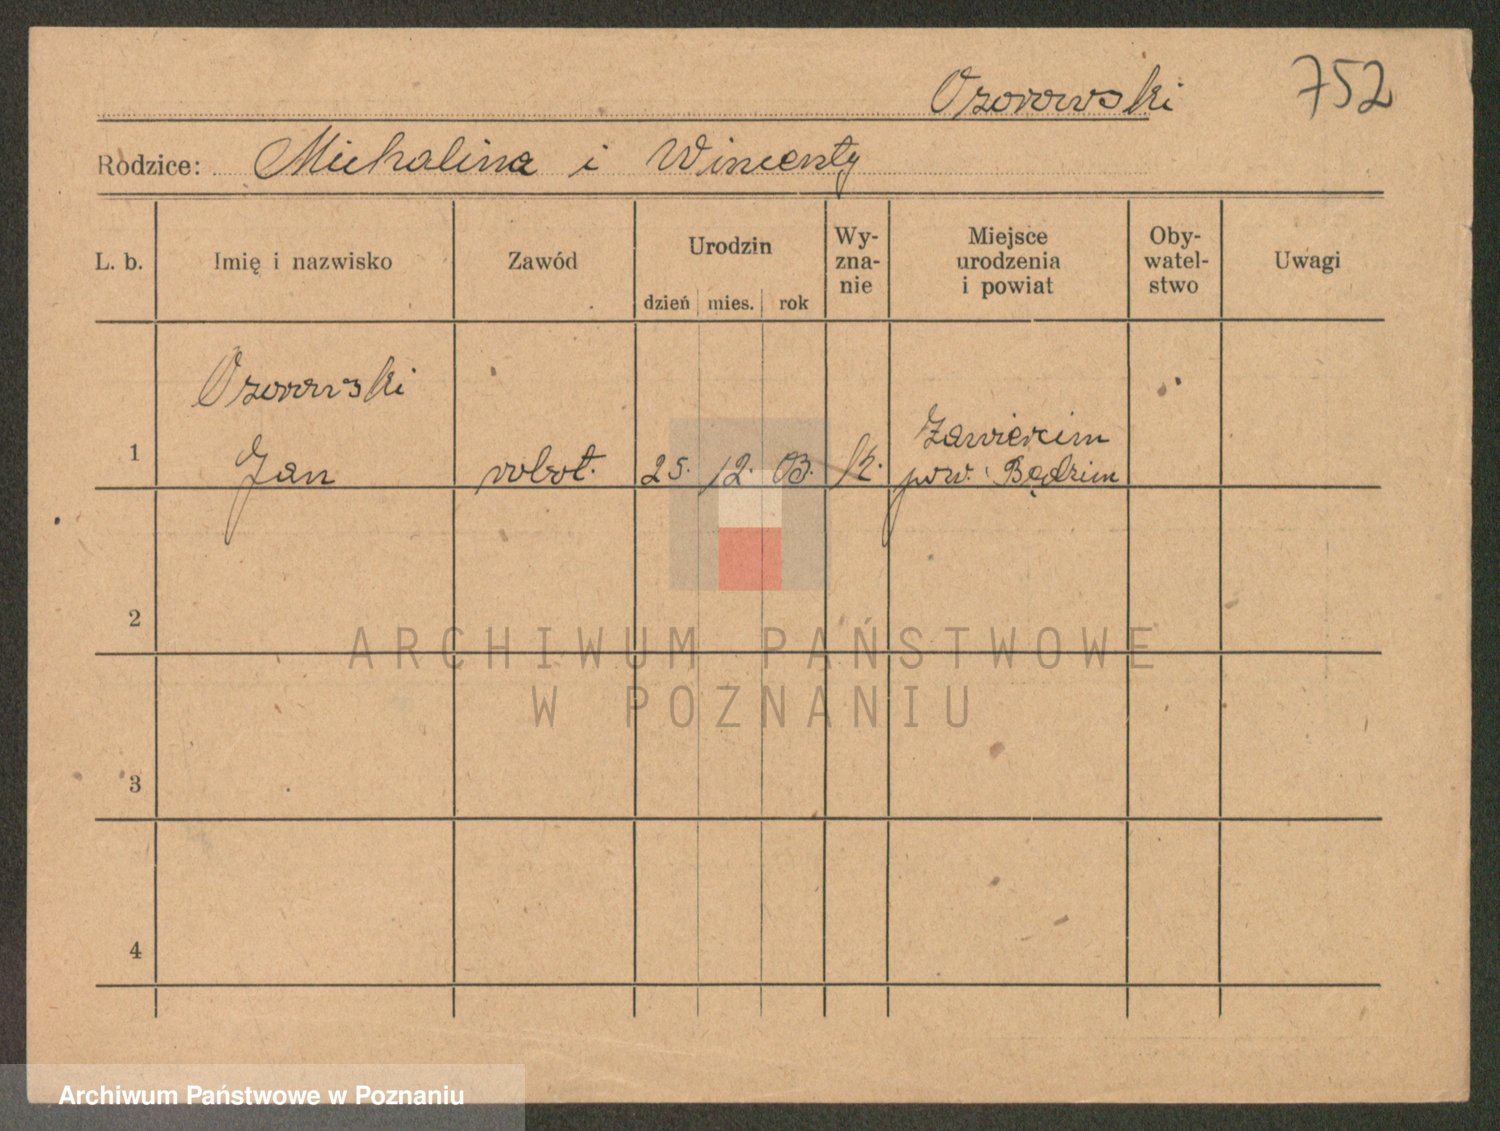 Ozorowski 752
Rodzice: Michalina i Wincenty
L. b. Imię i nazwisko Zawód Urodzin dzień mies. rok Wy-zna-nie Miejsce urodzenia i powiat Oby-watel-stwo Uwagi
Ozorowski
1 Jan robot. 25. 12. 03. Zawiercim
pow. Będzim
2
3
4
ARCHIWUM PAŃSTWOWE
W POZNANIU
Archiwum Państwowe w Poznaniu